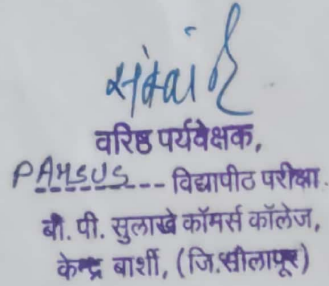 वरिष्ठ पर्यवेक्षक,
PAHSUS--- विद्यापीठ परीक्षा.
बी. पी. सुलाखे कॉमर्स कॉलेज,
केन्द्र बार्शी, (जि.सोलापूर)